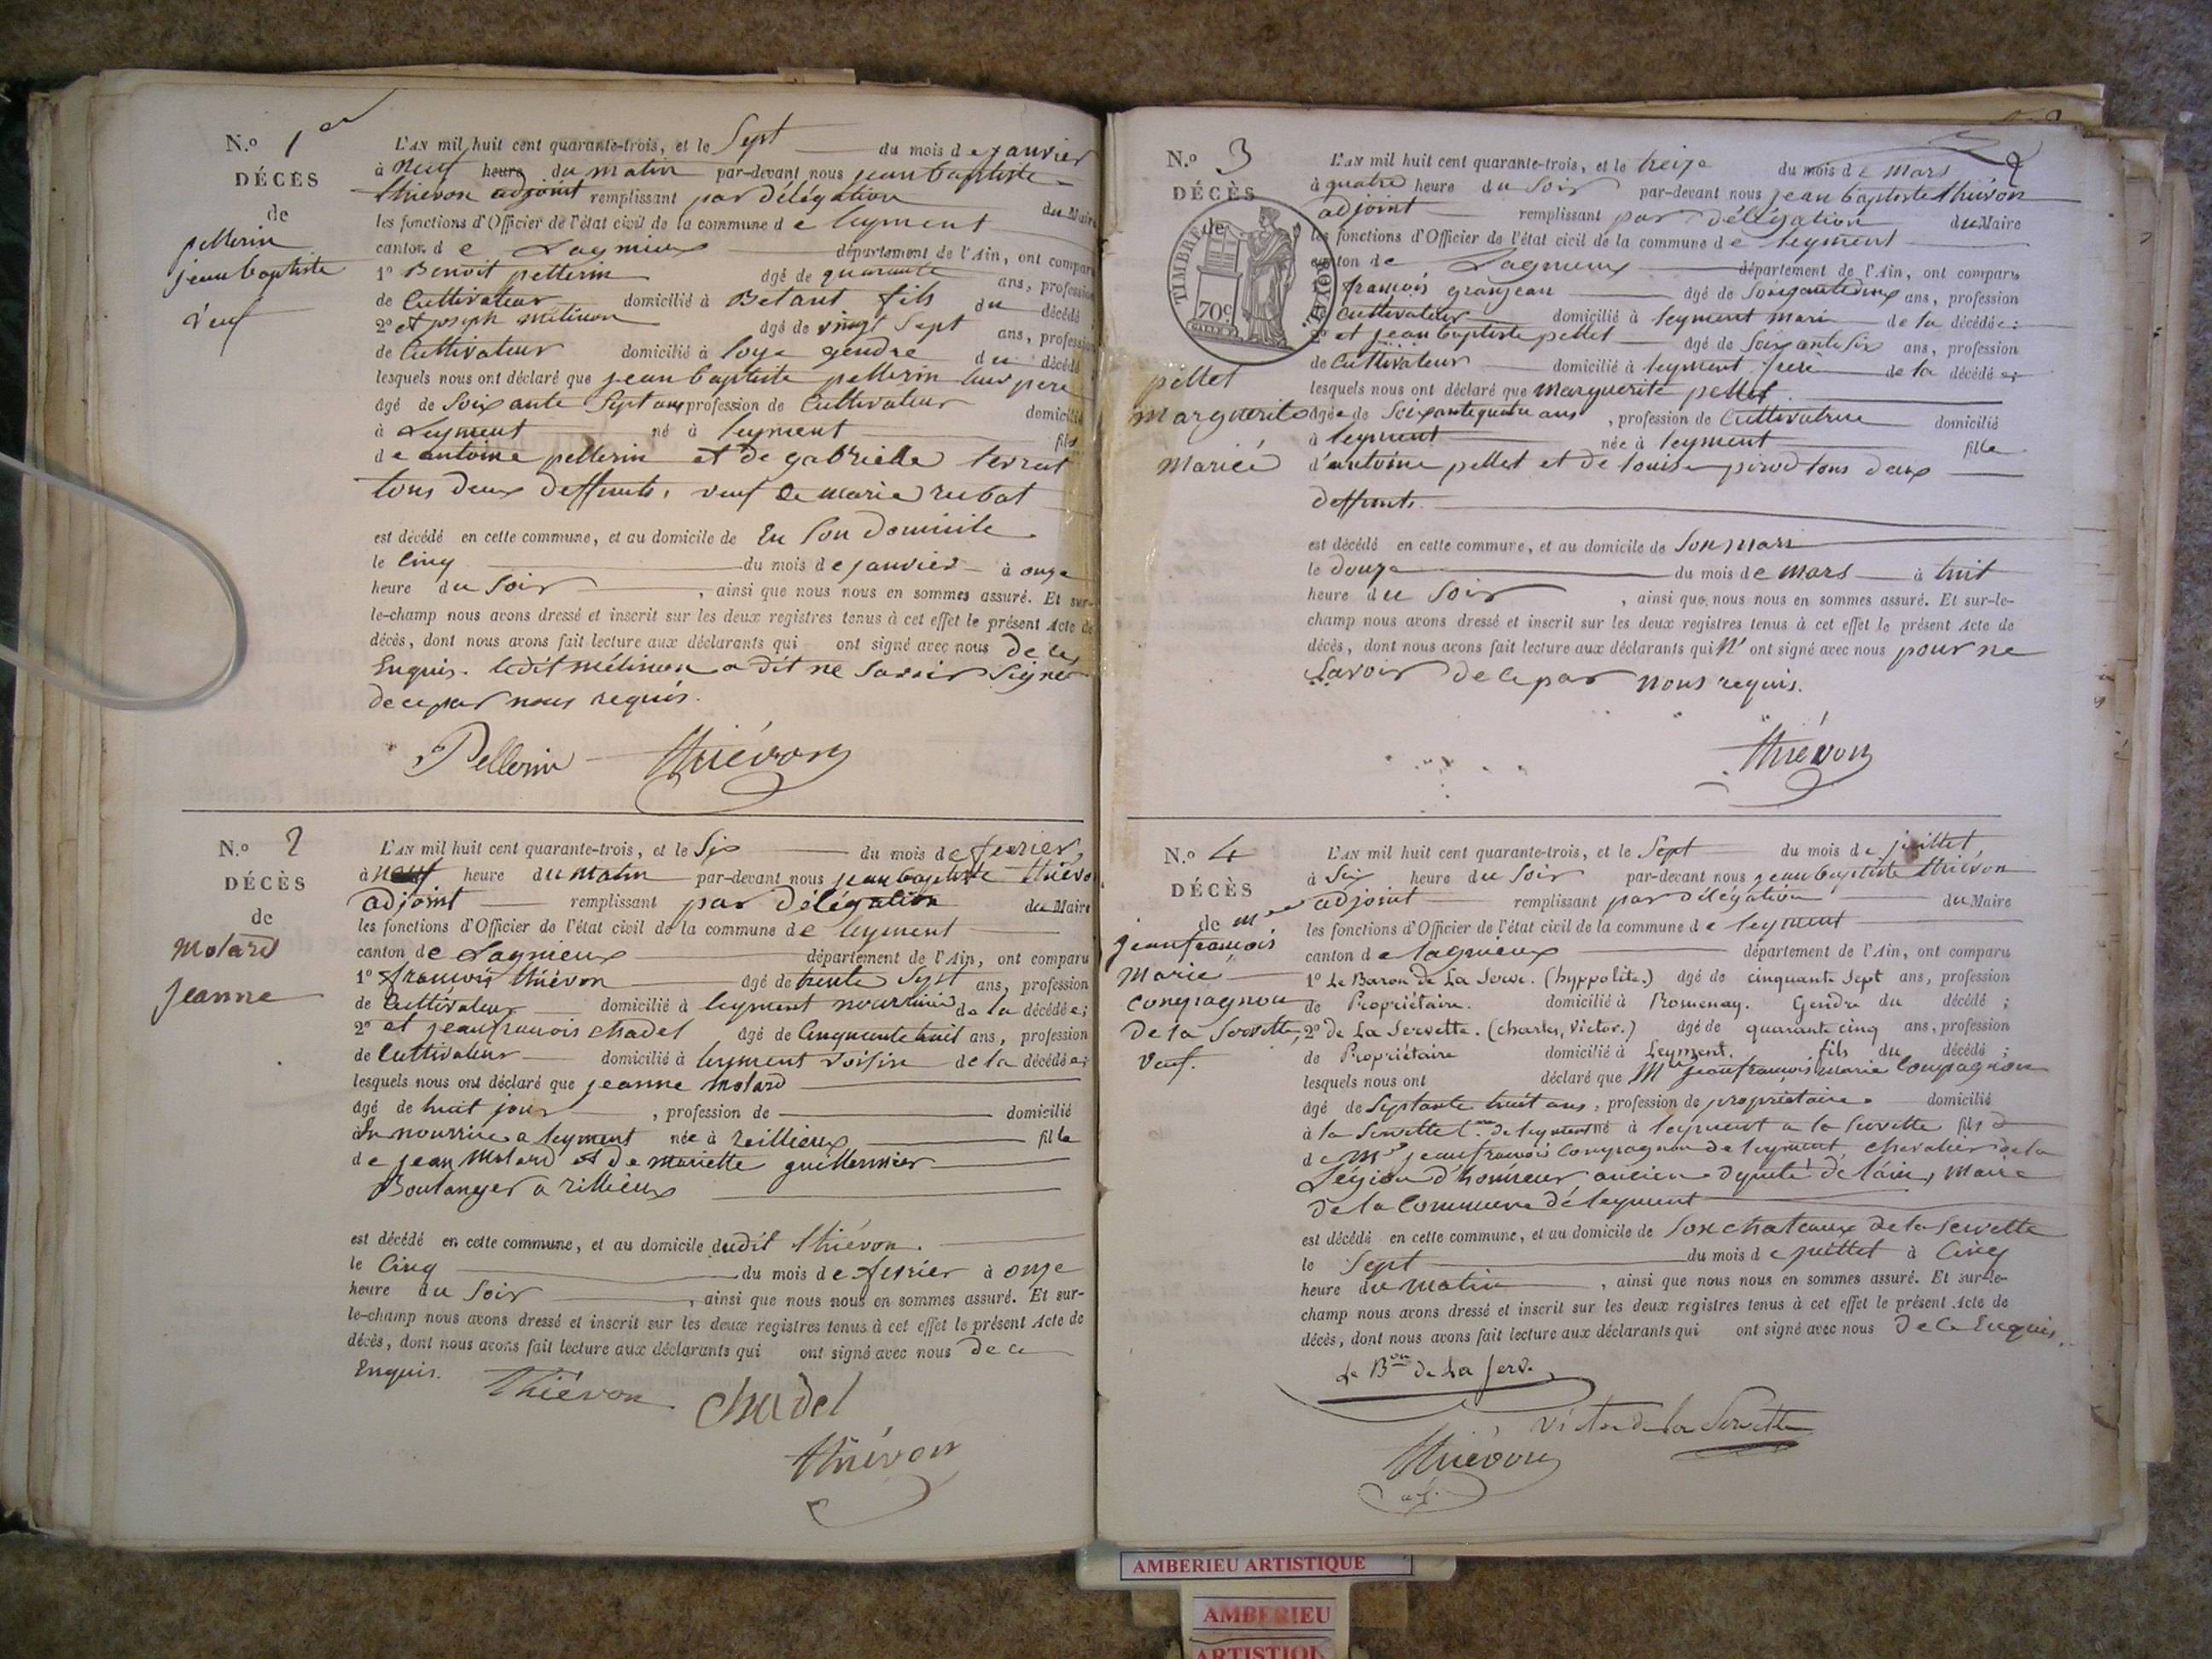 N.o 1er
DÉCÈS
de
pellerin
jean baptiste
Veuf
L'AN mil huit cent quarante-trois, et le Sept du mois de janvier
à Neuf heure du matin par-devant nous jean baptiste
thievon adjoint remplissant par délégation du Maire
les fonctions d'Officier de l'état civil de la commune de leyment
canton de Lagnieux département de l'Ain, ont comparu
1o Benoit pellerin âgé de quarante ans, profession
de Cultivateur domicilié à Betant fils du décédé
2o et joseph mélinon âgé de vingt Sept ans, profession
de Cultivateur domicilié à loye gendre du décédé
lesquels nous ont déclaré que jean baptiste pellerin leur pere
âgé de Soixante Sept ans profession de Cultivateur domicilié
à Leyment né à leyment fils
de antoine pellerin et de gabrielle
tous deux deffunts, veuf de marie rubat
est décédé en cette commune, et au domicile de En Son Domicile
le Cinq du mois de janvier à onze
heure du Soir, ainsi que nous nous en sommes assuré. Et sur-
le-champ nous avons dressé et inscrit sur les deux registres tenus à cet effet le présent Acte de
décès, dont nous avons fait lecture aux déclarants qui ont signé avec nous de ce
Enquis. ledit mélinon a dit ne Savoir Signer
de ce par nous requis.
Pellerin thiévon
N.o 2
DÉCÈS
de
Molard
Jeanne
L'AN mil huit cent quarante-trois, et le Six du mois de fevrier,
à neuf heure du matin par-devant nous jean baptiste thiévon
adjoint remplissant par délégation du Maire
les fonctions d'Officier de l'état civil de la commune de leyment
canton de Lagnieux département de l'Ain, ont comparu
1o françois thiévon âgé de trente Sept ans, profession
de Cultivateur domicilié à leyment nourricier de la décédée;
2o et jean françois chadel âgé de Cinquante huit ans, profession
de Cultivateur domicilié à leyment voisin de la décédée;
lesquels nous ont déclaré que jeanne molard
âgé de huit jours, profession de domicilié
à En nourrice a leyment née à reillieux fille
de jean Molard et de mariette guillermier
Boulanger a rillieux
est décédé en cette commune, et au domicile dudit thiévon.
le Cinq du mois de fevrier à onze
heure du Soir, ainsi que nous nous en sommes assuré. Et sur-
le-champ nous avons dressé et inscrit sur les deux registres tenus à cet effet le présent Acte de
décès, dont nous avons fait lecture aux déclarants qui ont signé avec nous de ce
Enquis. Thiévon chadel
thiévon
2
N.o 3
DÉCÈS
de
TIMBRE ROYAL.
70c
pellet
Marguerite
Mariée
L'AN mil huit cent quarante-trois, et le treize du mois de mars
à quatre heure du Soir par-devant nous jean baptiste thiévon
adjoint remplissant par délégation du Maire
les fonctions d'Officier de l'état civil de la commune de leyment
canton de Lagnieux département de l'Ain, ont comparu
françois granjean âgé de Soixante deux ans, profession
Cultivateur domicilié à leyment mari de la décédée:
2o et jean baptiste pellet âgé de Soixante Six ans, profession
de Cultivateur domicilié à leyment frere de la décédée;
lesquels nous ont déclaré que Marguerite pellet
âgée de Soixante quatre ans, profession de Cultivatrice domicilié
à leyment née à leyment fille
d'antoine pellet et de louise pirod tous deux
deffunts.
est décédé en cette commune, et au domicile de Son mari
le douze du mois de mars à huit
heure du Soir, ainsi que nous nous en sommes assuré. Et sur-le-
champ nous avons dressé et inscrit sur les deux registres tenus à cet effet le présent Acte de
décès, dont nous avons fait lecture aux déclarants qui N'ont signé avec nous pour ne
Savoir de ce par nous requis.
thiévon
N.o 4
DÉCÈS
de Mr
jean françois
Marie
Compagnon
De la Servette,
Veuf.
L'AN mil huit cent quarante-trois, et le Sept du mois de juillet,
à Six heure du Soir par-devant nous jean baptiste thiévon
adjoint remplissant par délégation du Maire
les fonctions d'Officier de l'état civil de la commune de leyment
canton de lagnieux département de l'Ain, ont comparu
1o Le Baron de La Serve. (hyppolite.) âgé de cinquante sept ans, profession
de Propriétaire. domicilié à Romenay. Gendre du décédé;
2o de La Servette. (charles, Victor.) âgé de quarante cinq ans, profession
de Propriétaire domicilié à Leyment. fils du décédé;
lesquels nous ont déclaré que Mr jean françois marie Compagnon
âgé de Septante huit ans, profession de propriétaire domicilié
à la Servette Cne de leyment né à leyment a la Servette fils
de Mr jean françois Compagnon de leyment, chevalier de la
Légion d'honneur ancien Député de l'ain, Maire
de la Commune de leyment
est décédé en cette commune, et au domicile de Son chateaux de la Servette
le Sept du mois de juillet à Cinq
heure du Matin, ainsi que nous nous en sommes assuré. Et sur-le-
champ nous avons dressé et inscrit sur les deux registres tenus à cet effet le présent Acte de
décès, dont nous avons fait lecture aux déclarants qui ont signé avec nous de ce Enquis.
Le Bon de La Serve
Victor de la Servette
thiévon
adj.
AMBERIEU ARTISTIQUE
AMBERIEU
ARTISTIQU